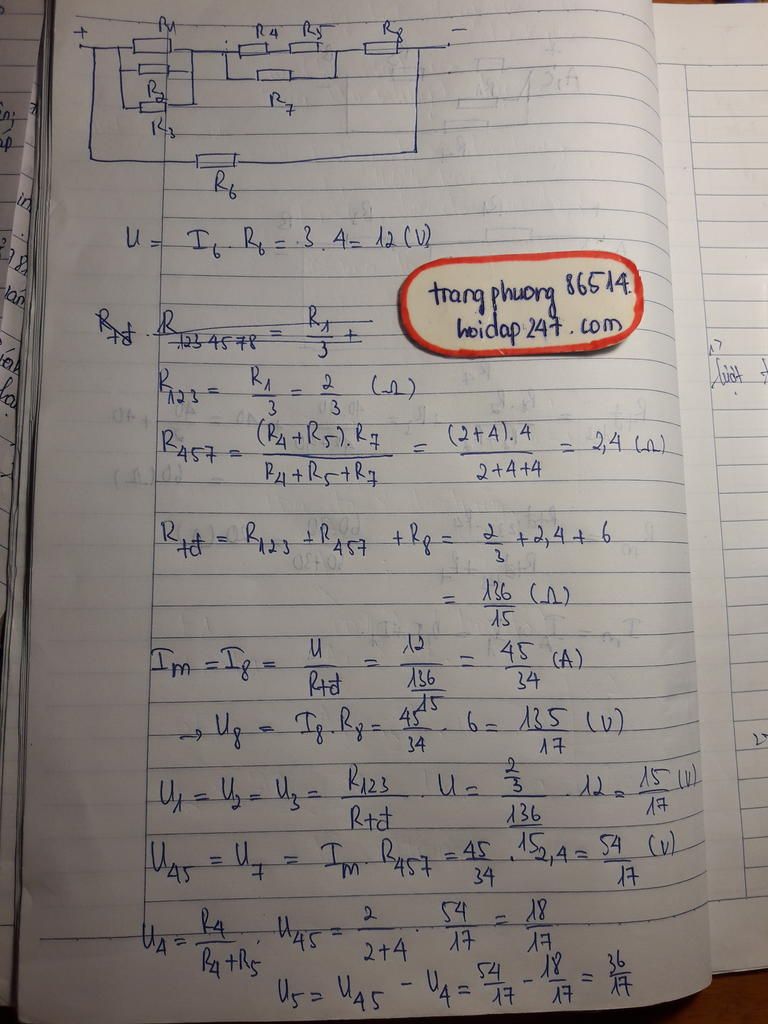 + R1 R4 R5 R8 −
R2 R7
R3
R6
U = I6 . R6 = 3 . 4 = 12 (V)
trang phuong 86514.
hoidap 247 . com
Rtđ . R1234578 = R1/3 +
R123 = R1/3 = 2/3 (Ω)
R457 = (R4 + R5) . R7 / R4 + R5 + R7 = (2+4) . 4 / 2+4+4 = 2,4 (Ω)
Rtđ = R123 + R457 + R8 = 2/3 + 2,4 + 6
= 136/15 (Ω)
Im = I8 = U/Rtđ = 12/(136/15) = 45/34 (A)
→ U8 = I8 . R8 = 45/34 . 6 = 135/17 (V)
U1 = U2 = U3 = R123/Rtđ . U = (2/3)/(136/15) . 12 = 15/17 (V)
U45 = U7 = Im . R457 = 45/34 . 2,4 = 54/17 (V)
U4 = R4/(R4+R5) . U45 = 2/(2+4) . 54/17 = 18/17
U5 = U45 − U4 = 54/17 − 18/17 = 36/17